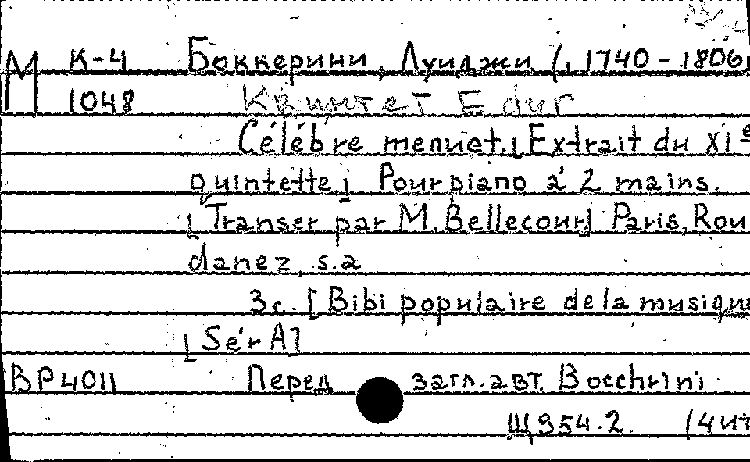 М К-4 Боккерини, Луиджи (, 1740-1806,
1048 Квинтет E dur
Célébre menuet. [Extrait du XIe
quintette] Pour piano á 2 mains.
[Transcr par M. Bellecour] Paris, Rou
danez, s.a
3с. [Bibi populaire de la musique
[Sér A]
ВР4011 Перед загл. авт. Bocchrini
Щ954.2. (4ит